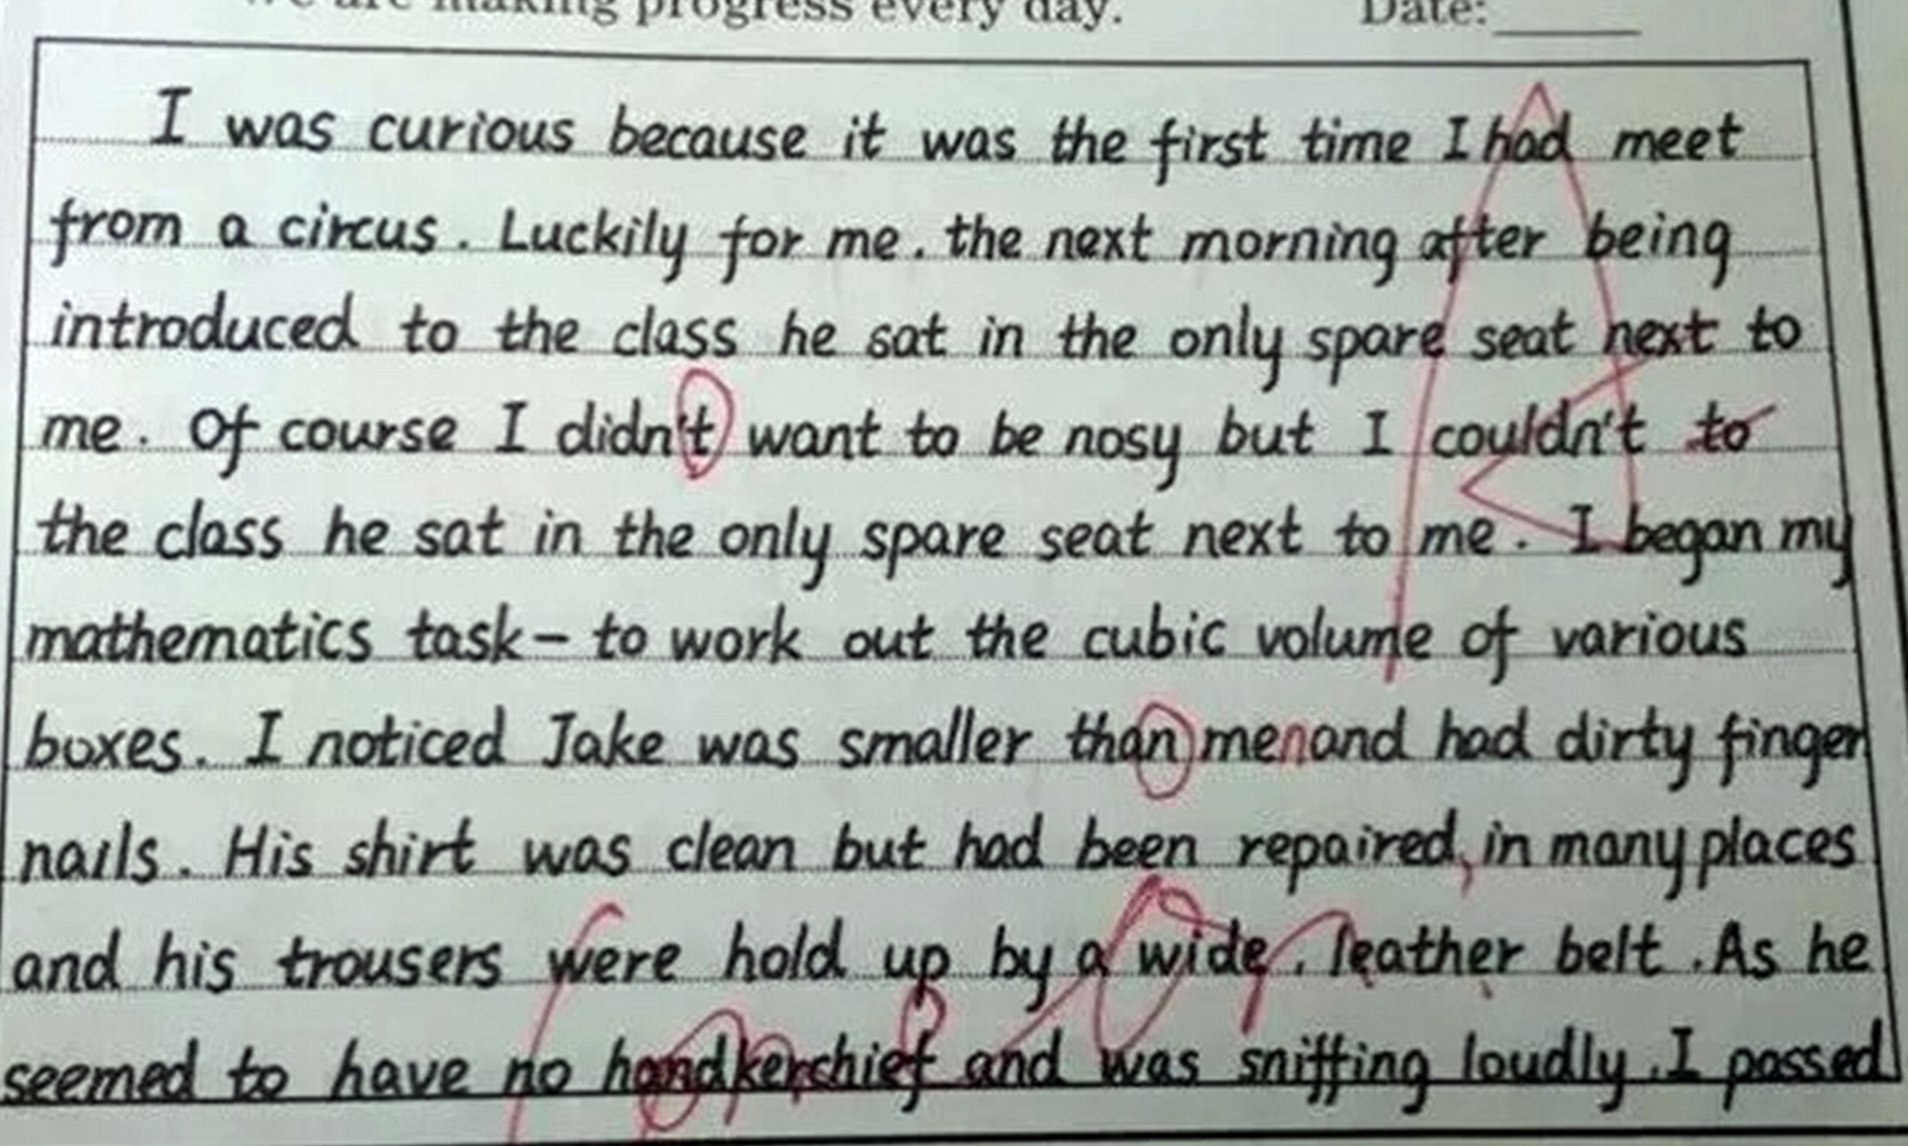 We are making progress every day. Date:
I was curious because it was the first time I had meet
from a circus. Luckily for me. the next morning after being
introduced to the class he sat in the only spare seat next to
me. Of course I didn't want to be nosy but I couldn't to
the class he sat in the only spare seat next to me. I began my
mathematics task- to work out the cubic volume of various
boxes. I noticed Jake was smaller than menand had dirty finger
nails. His shirt was clean but had been repaired, in many places
and his trousers were hold up by a wide. leather belt. As he
seemed to have no handkerchief and was sniffing loudly. I passed